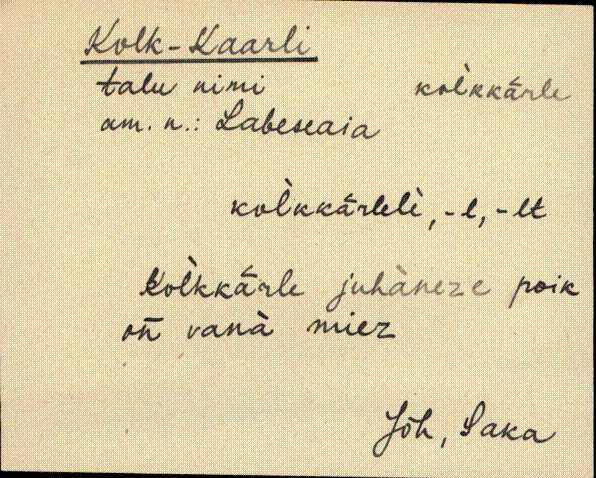 Kolk-Kaarli
talu nimi kol̀kkárle
am. n.: Labeseaia
kol̀kkárlelè, -l, -lt
Kol̀kkárle juhàneze poik
on̄ vanà miez
Jõh, Saka